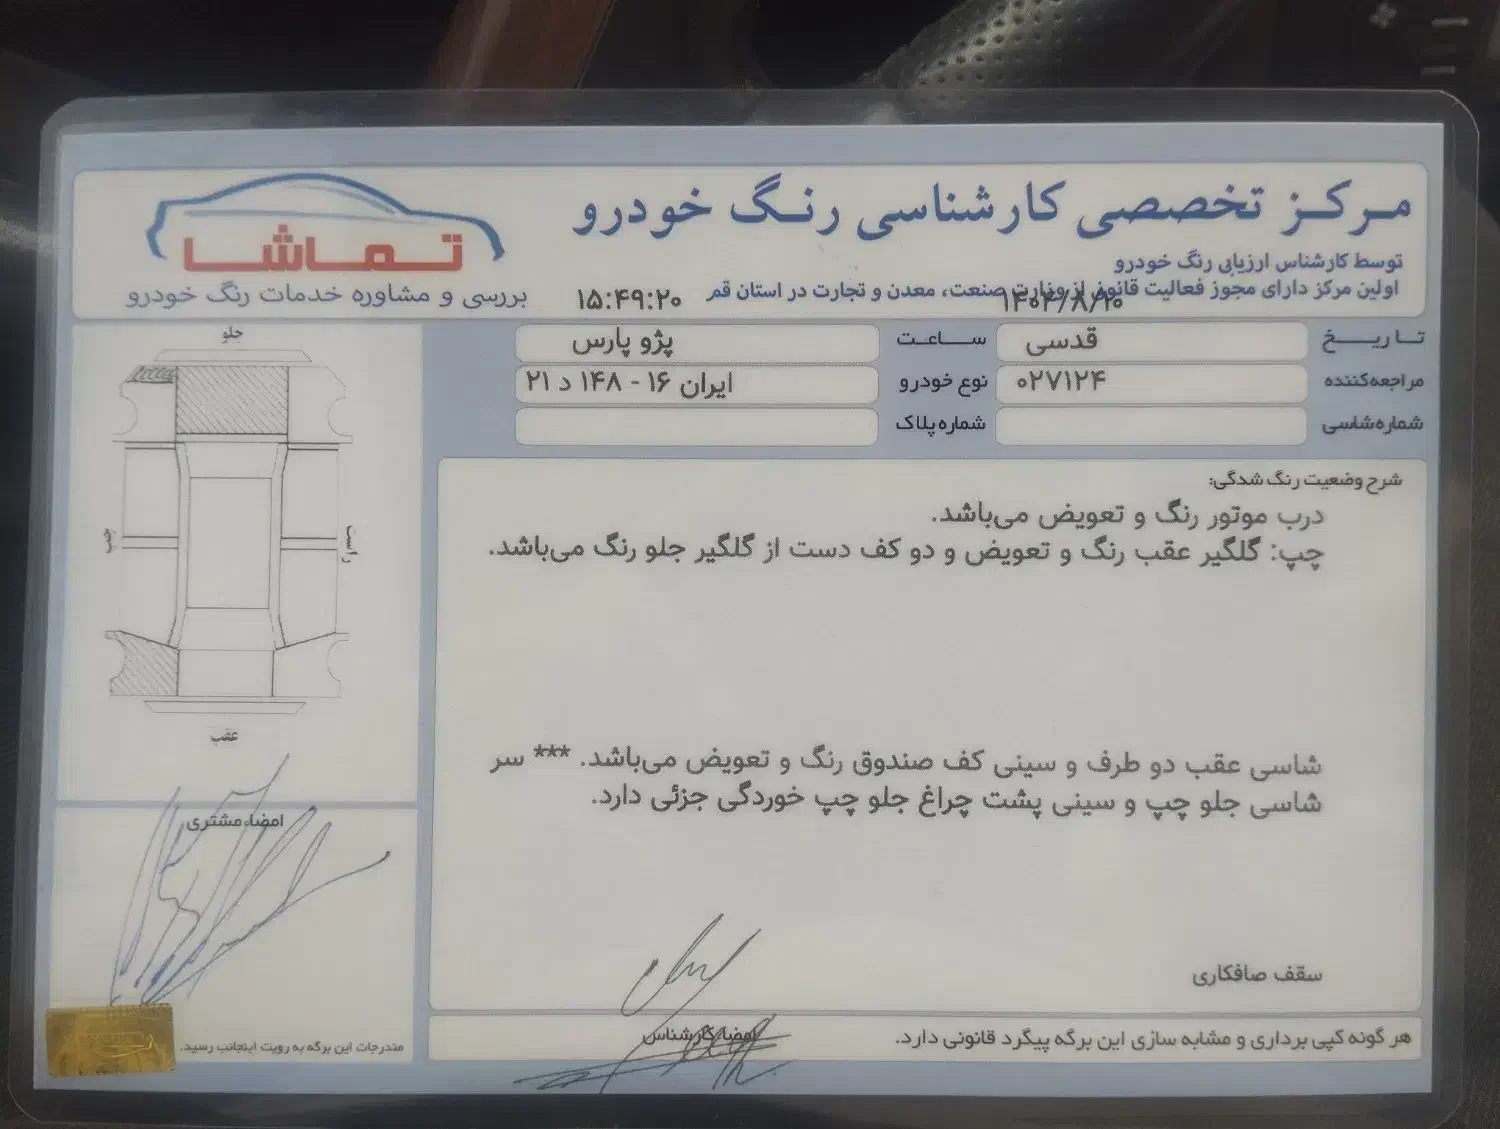 مرکز تخصصی کارشناسی رنگ خودرو
تماشا
توسط کارشناس ارزیابی رنگ خودرو
اولین مرکز دارای مجوز فعالیت قانونی از وزارت صنعت، معدن و تجارت در استان قم
بررسی و مشاوره خدمات رنگ خودرو
۱۴۰۴/۸/۲۰
۱۵:۴۹:۲۰
تاریخ
قدسی
ساعت
پژو پارس
مراجعه‌کننده
۰۲۷۱۲۴
نوع خودرو
ایران ۱۶ - ۱۴۸ د ۲۱
شماره‌شاسی
شماره پلاک
جلو
چپ
راست
عقب
شرح وضعیت رنگ شدگی:
درب موتور رنگ و تعویض می‌باشد.
چپ: گلگیر عقب رنگ و تعویض و دو کف دست از گلگیر جلو رنگ می‌باشد.
شاسی عقب دو طرف و سینی کف صندوق رنگ و تعویض می‌باشد. *** سر
شاسی جلو چپ و سینی پشت چراغ جلو چپ خوردگی جزئی دارد.
سقف صافکاری
امضاء مشتری
مندرجات این برگه به رویت اینجانب رسید.
امضاء کارشناس
هر گونه کپی برداری و مشابه سازی این برگه پیگرد قانونی دارد.